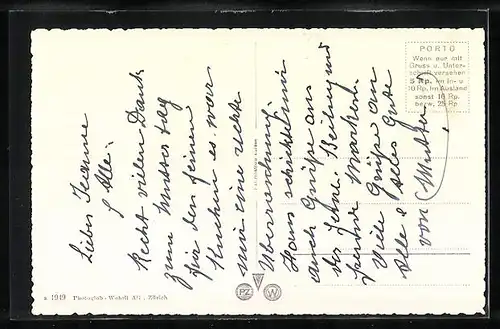 Liebes Jeanne
& Alle!
Recht vielen Dank
zum Muttertag
für den feinen
Kuchen es war
mir eine rechte
Überraschung
Hans schickt mir
auch Grüsse aus
der Zeitung und
Viele Grüsse an
Alle & Alles Gute
von Mutter
PORTO
Wenn nur mit
Gruss u. Unter-
schrift versehen
5 Rp. im In- u.
10 Rp. im Ausland
sonst 10 Rp.
bezw. 25 Rp.
a 1919 Photoglob-Wehrli AG., Zürich
PZ W